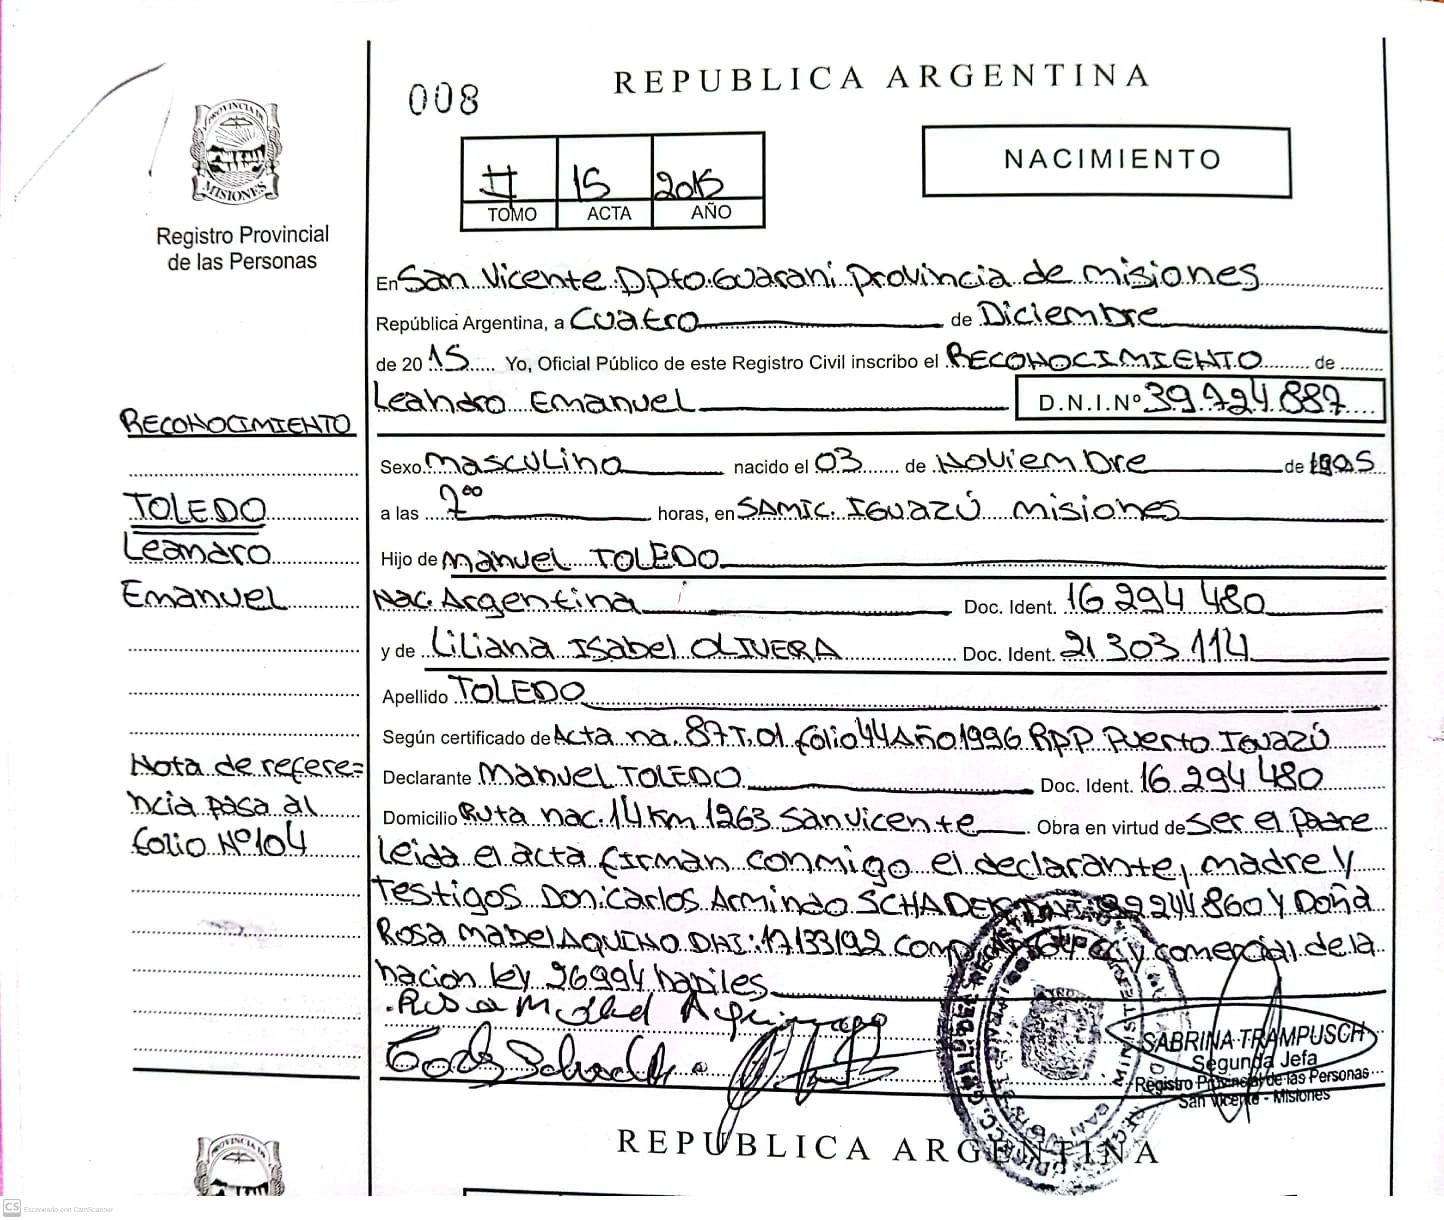 008
REPUBLICA ARGENTINA
PROVINCIA DE
MISIONES
Registro Provincial
de las Personas
II 15 2015
TOMO ACTA AÑO
NACIMIENTO
En San Vicente Dpto. Guarani provincia de misiones
República Argentina, a Cuatro de Diciembre
de 2015 Yo, Oficial Público de este Registro Civil inscribo el RECONOCIMIENTO de
Leandro Emanuel D.N.I.Nº 39.724.887
RECONOCIMIENTO
TOLEDO
Leandro
Emanuel
Sexo masculino nacido el 03 de Noviembre de 1995
a las 7⁰⁰ horas, en SAMIC. IGUAZÚ misiones
Hijo de Manuel TOLEDO
Nac. Argentina Doc. Ident. 16 294 480
y de Liliana Isabel OLIVERA Doc. Ident. 21 303 114
Apellido TOLEDO
Según certificado de Acta na. 87 T. 01 folio 44 Año 1996 RPP Puerto Iguazú
Nota de refere=
ncia pasa al
folio Nº 104
Declarante Manuel TOLEDO Doc. Ident. 16 294 480
Domicilio Ruta nac. 14 Km 1263 San vicente Obra en virtud de ser el padre
leida el acta firman conmigo el declarante, madre y
testigos Don: Carlos Armindo SCHADEK 244 860 y Doña
Rosa Mabel AQUINO DNI: 17133192 comp y comercial de la
nacion ley 26994 habiles
SABRINA TRAMPUSCH
Segunda Jefa
Registro Provincial de las Personas
San Vicente - Misiones
REPUBLICA ARGENTINA
PROVINCIA DE
CS Escaneado con CamScanner